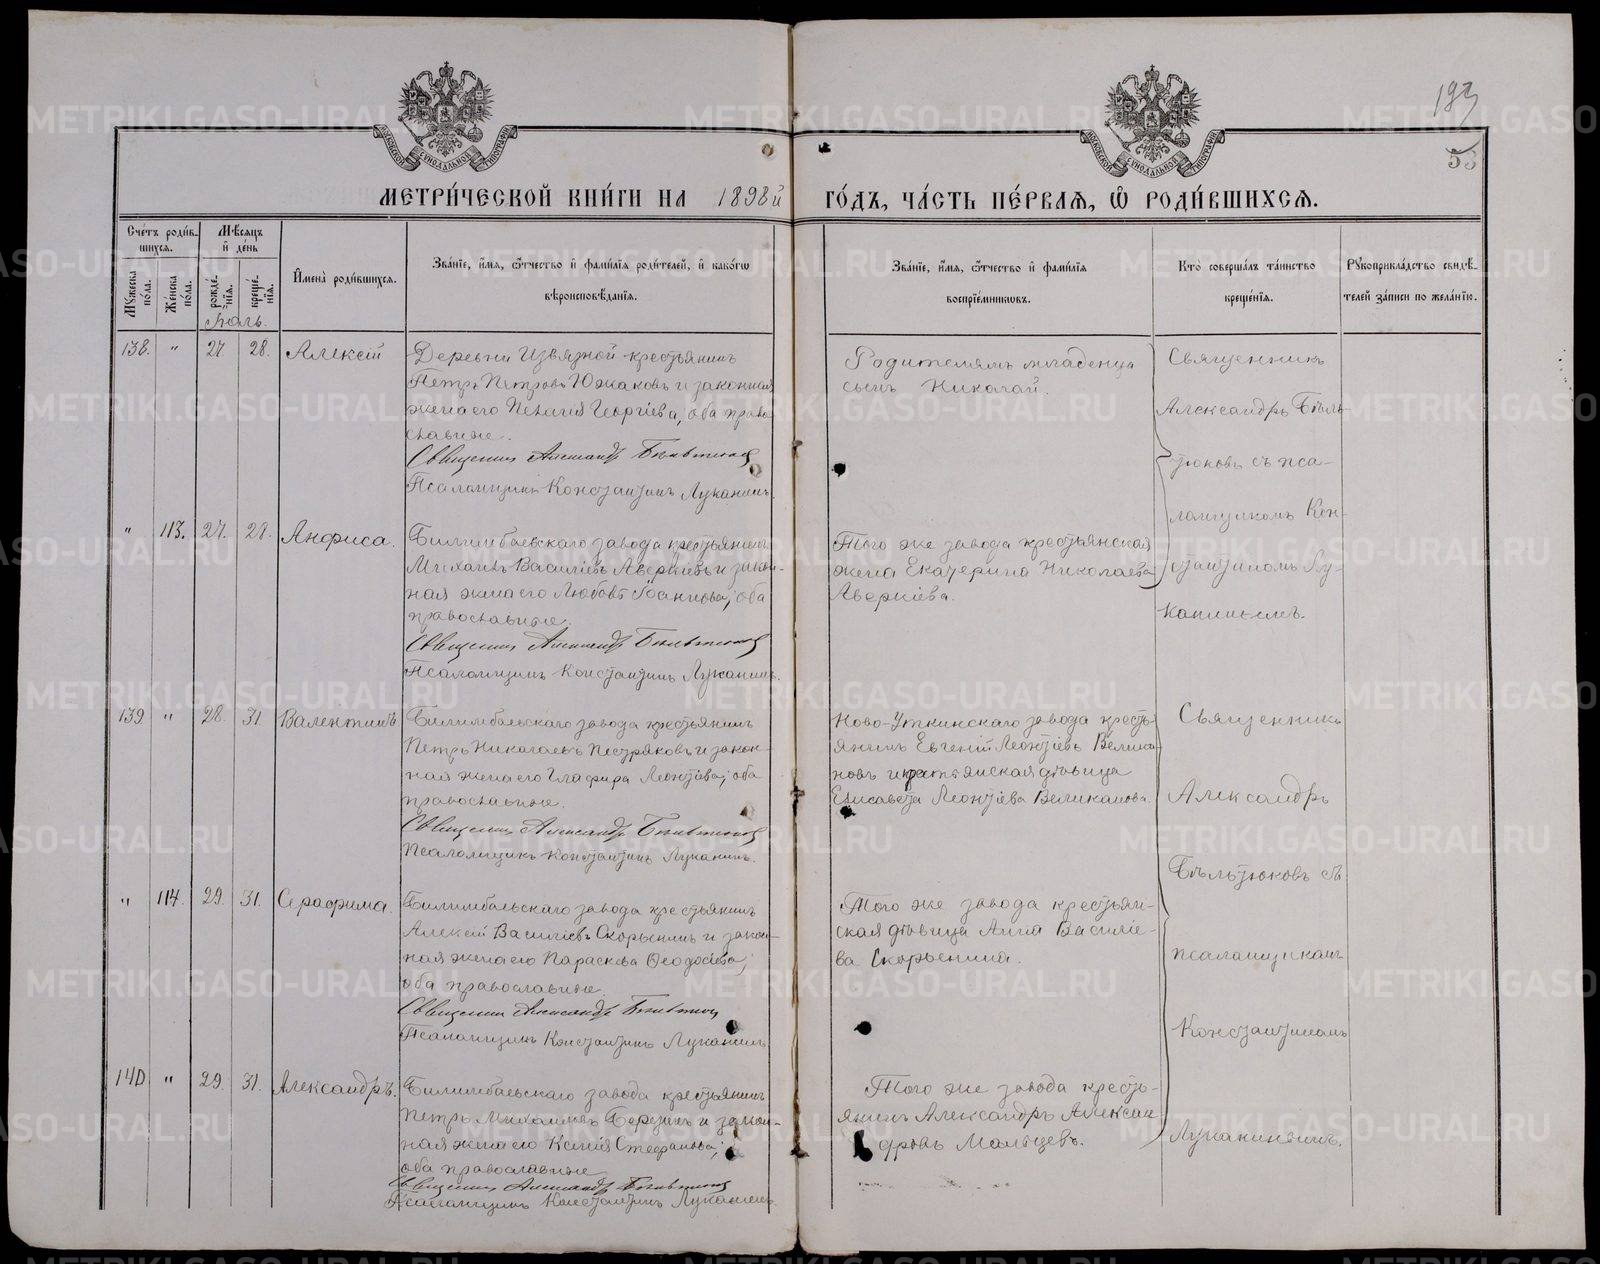 193
53
МОСКОВСКОЙ СУНОДАЛЬНОЙ ТИПОГРАФІИ
МОСКОВСКОЙ СУНОДАЛЬНОЙ ТИПОГРАФІИ
МЕТРИ́ЧЕСКОЙ КНИ́ГИ НА 1898й ГО́ДЪ, ЧА́СТЬ ПЕ́РВАѦ, Ѿ РОДИ́ВШИХСѦ.
Сче́тъ роди́в-
шихсѧ.
Мѣ́сѧцъ
и҆ де́нь
Му́жеска по́ла.
Же́нска по́ла.
рожде́-нїѧ.
креще́-нїѧ.
И҆мена̀ роди́вшихсѧ.
Зва́нїе, и҆́мѧ, ѻ҆́тчество и҆ фами́лїѧ роди́телей, и҆ како́гѡ
вѣроисповѣ́данїѧ.
Зва́нїе, и҆́мѧ, ѻ҆́тчество и҆ фами́лїѧ
воспрїе́мникѡвъ.
Кто̀ соверша́лъ та́инство
креще́нїѧ.
Рꙋкоприкла́дство свидѣ́-
телей за́писи по жела́нїю.
Іюль.
138. " 27 28. Алексій
Деревни Извязной крестьянинъ
Петръ Петровъ Южаковъ и законная
жена его Пелагія Георгіева, оба право-
славные.
Священникъ Александръ Бѣльтюковъ
Псаломщикъ Константинъ Луканинъ.
Родителямъ младенца
сынъ Николай.
Священникъ
Александръ Бѣль-
тюковъ съ пса-
ломщикомъ Кон-
стантиномъ Лу-
канинымъ.
" 113. 27. 28. Анфиса.
Билимбаевскаго завода крестьянинъ
Михаилъ Василіевъ Аверкіевъ и закон-
ная жена его Любовь Іоаннова, оба
православные.
Священникъ Александръ Бѣльтюковъ
Псаломщикъ Константинъ Луканинъ.
Того же завода крестьянская
жена Екатерина Николаева
Аверкіева.
139 " 28. 31. Валентинъ
Билимбаевскаго завода крестьянинъ
Петръ Николаевъ Пестряковъ и закон-
ная жена его Глафира Леонтіева, оба
православные.
Священникъ Александръ Бѣльтюковъ
Псаломщикъ Константинъ Луканинъ.
Ново-Уткинскаго завода кресть-
янинъ Евгеній Леонтіевъ Велика-
новъ и крестьянская дѣвица
Елисавета Леонтіева Великанова.
Священникъ
Александръ
Бѣльтюковъ съ
псаломщикомъ
Константиномъ
Луканинымъ.
" 114. 29. 31. Серафима.
Билимбаевскаго завода крестьянинъ
Алексій Василіевъ Скорынинъ и закон-
ная жена его Параскева Ѳеодосіева,
оба православные.
Священникъ Александръ Бѣльтюковъ
Псаломщикъ Константинъ Луканинъ.
Того же завода крестьян-
ская дѣвица Анна Василіе-
ва Скорынина.
140 " 29. 31. Александръ.
Билимбаевскаго завода крестьянинъ
Петръ Михаиловъ Березинъ и закон-
ная жена его Ксенія Стефанова,
оба православные
Священникъ Александръ Бѣльтюковъ
Псаломщикъ Константинъ Луканинъ.
Того же завода кресть-
янинъ Александръ Алексан-
дровъ Мальцевъ.
METRIKI.GASO-URAL.RU